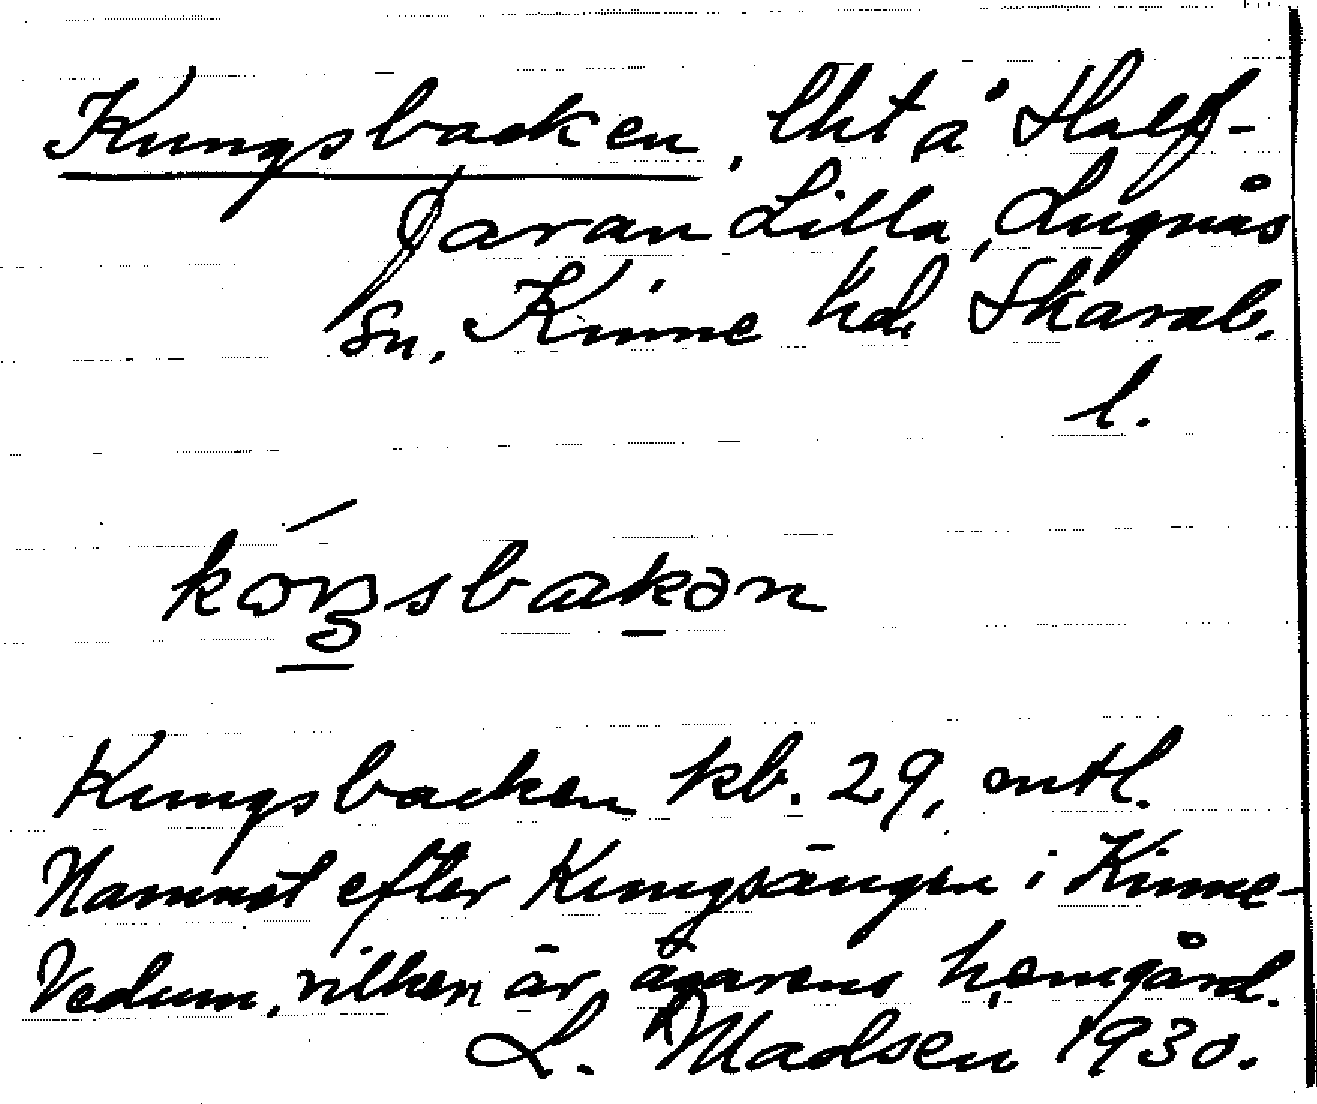 Kungsbacken, lht å Half-
javan Lilla, Lugnås
sn, Kinne hd, Skarab.
l.
kóŋsbakən
Kungsbacken kb. 29, mtl.
Namnet efter Kungsängen i Kinne-
Vedum, vilken är ägarens hemgård.
L. Madsen 1930.